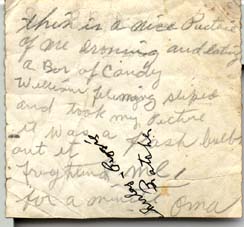 this is a nice Picture
of me Ironing and eating
a Box of Candy
William fleming sliped
and took my Picture
it was a flash bulb
out it
frightened me
for a minute Oma